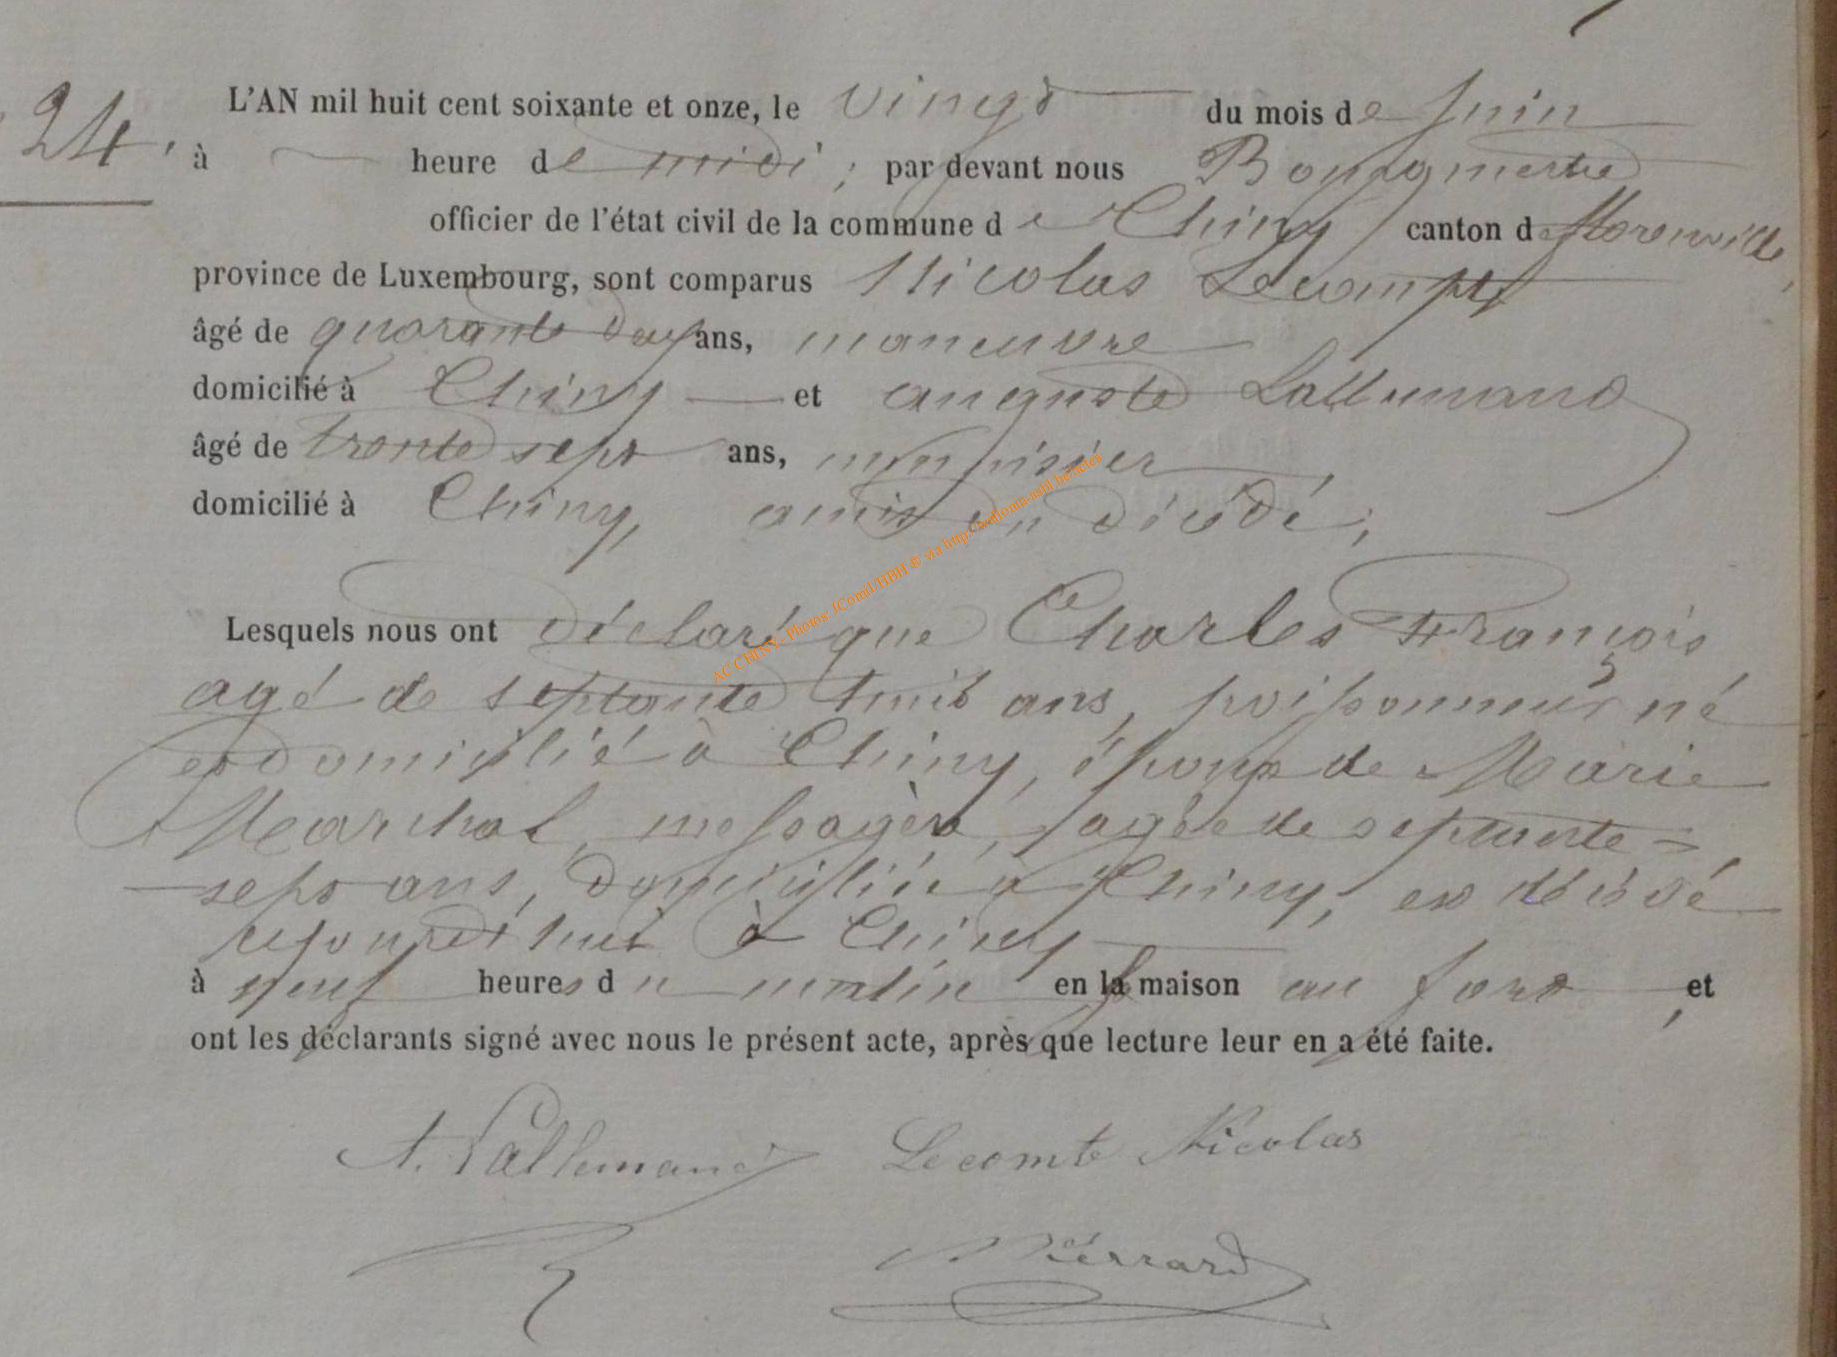 24.
L'AN mil huit cent soixante et onze, le vingt du mois de Juin
à heure de midi ; par devant nous Bourgmestre
officier de l'état civil de la commune de Chiny canton de Florenville,
province de Luxembourg, sont comparus Nicolas Lecompte
âgé de quarante deux ans, maneuvre
domicilié à Chiny et auguste Lallemand
âgé de trente sept ans, menuisier
domicilié à Chiny, amis du décédé ;
Lesquels nous ont déclaré que Charles François
agé de septante huit ans, poissonneur né
et domicilié à Chiny, époux de Marie
Marchal, messagère, agée de septante-
sept ans, domiciliée à Chiny, est décédé
aujourd'hui à Chiny
à neuf heures du matin en la maison au fort, et
ont les déclarants signé avec nous le présent acte, après que lecture leur en a été faite.
A. Lallemand Lecomte Nicolas
Pierrard
AC CHINY - Photos JComil/HBH @ via http://